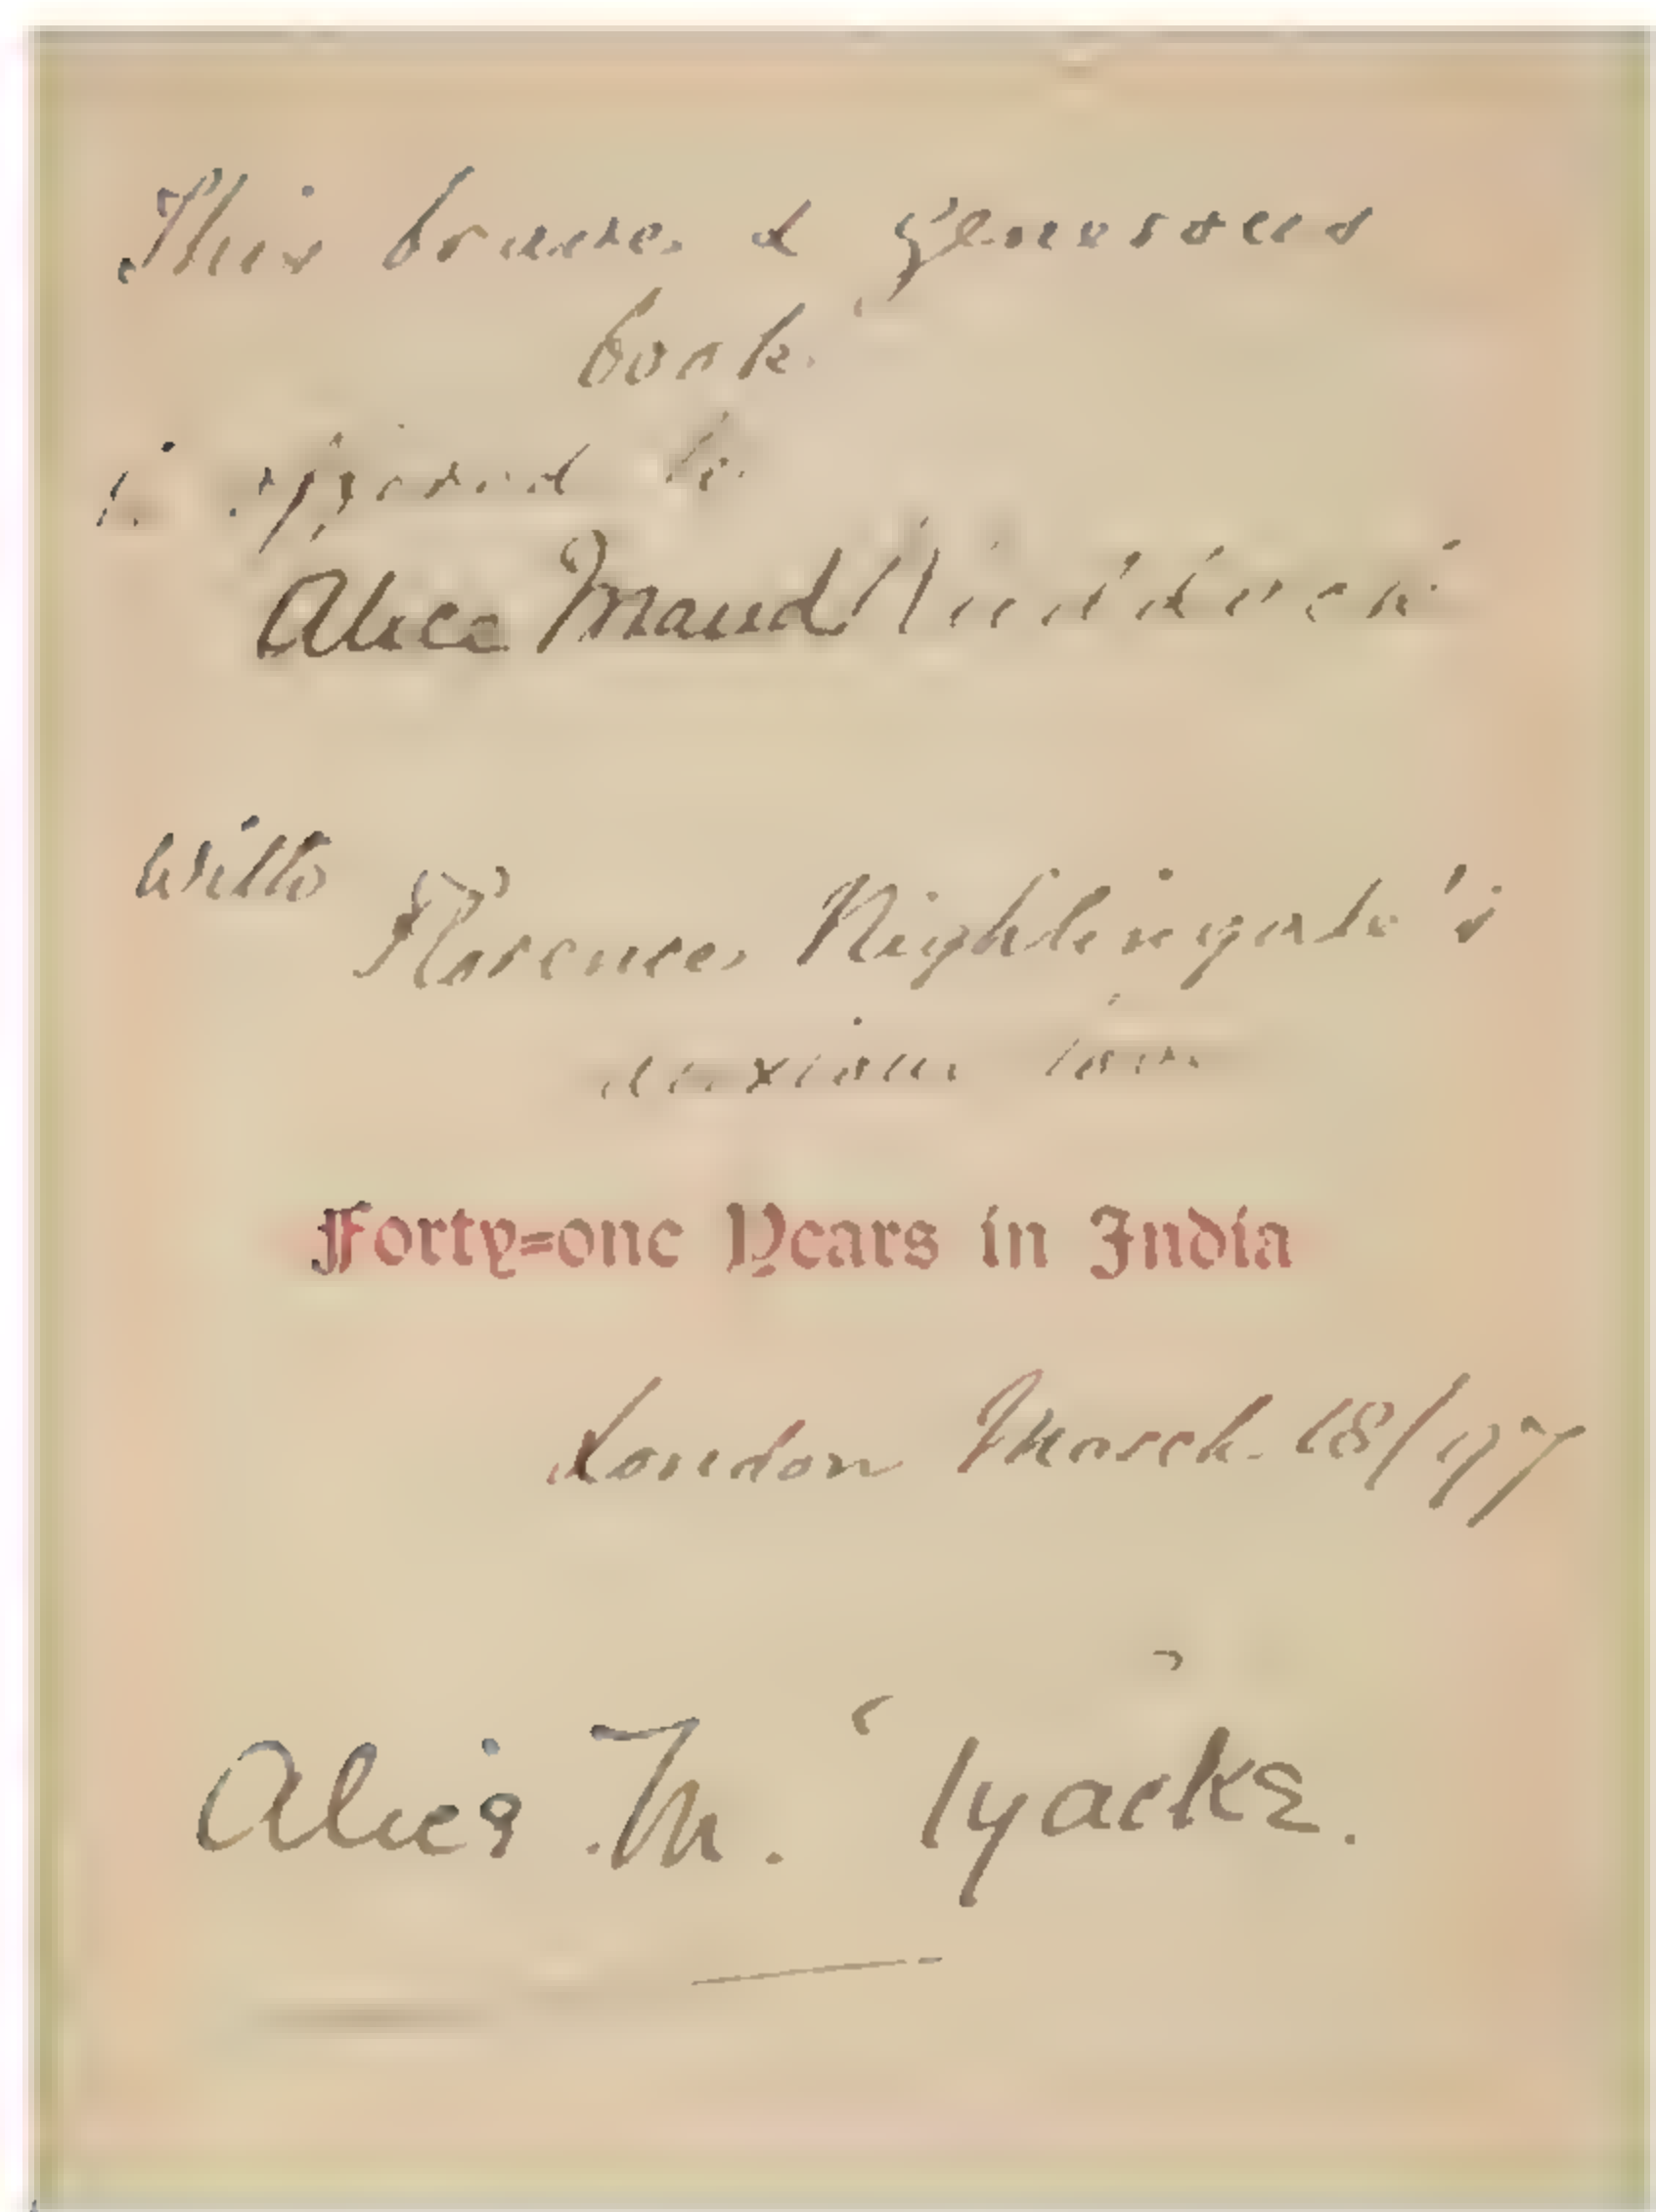 This brave & generous
book
is offered to
Alice Maud
with
Florence Nightingale's
anxious love
Forty=one Years in India
London March 18/97
Alice M. Tyacke.